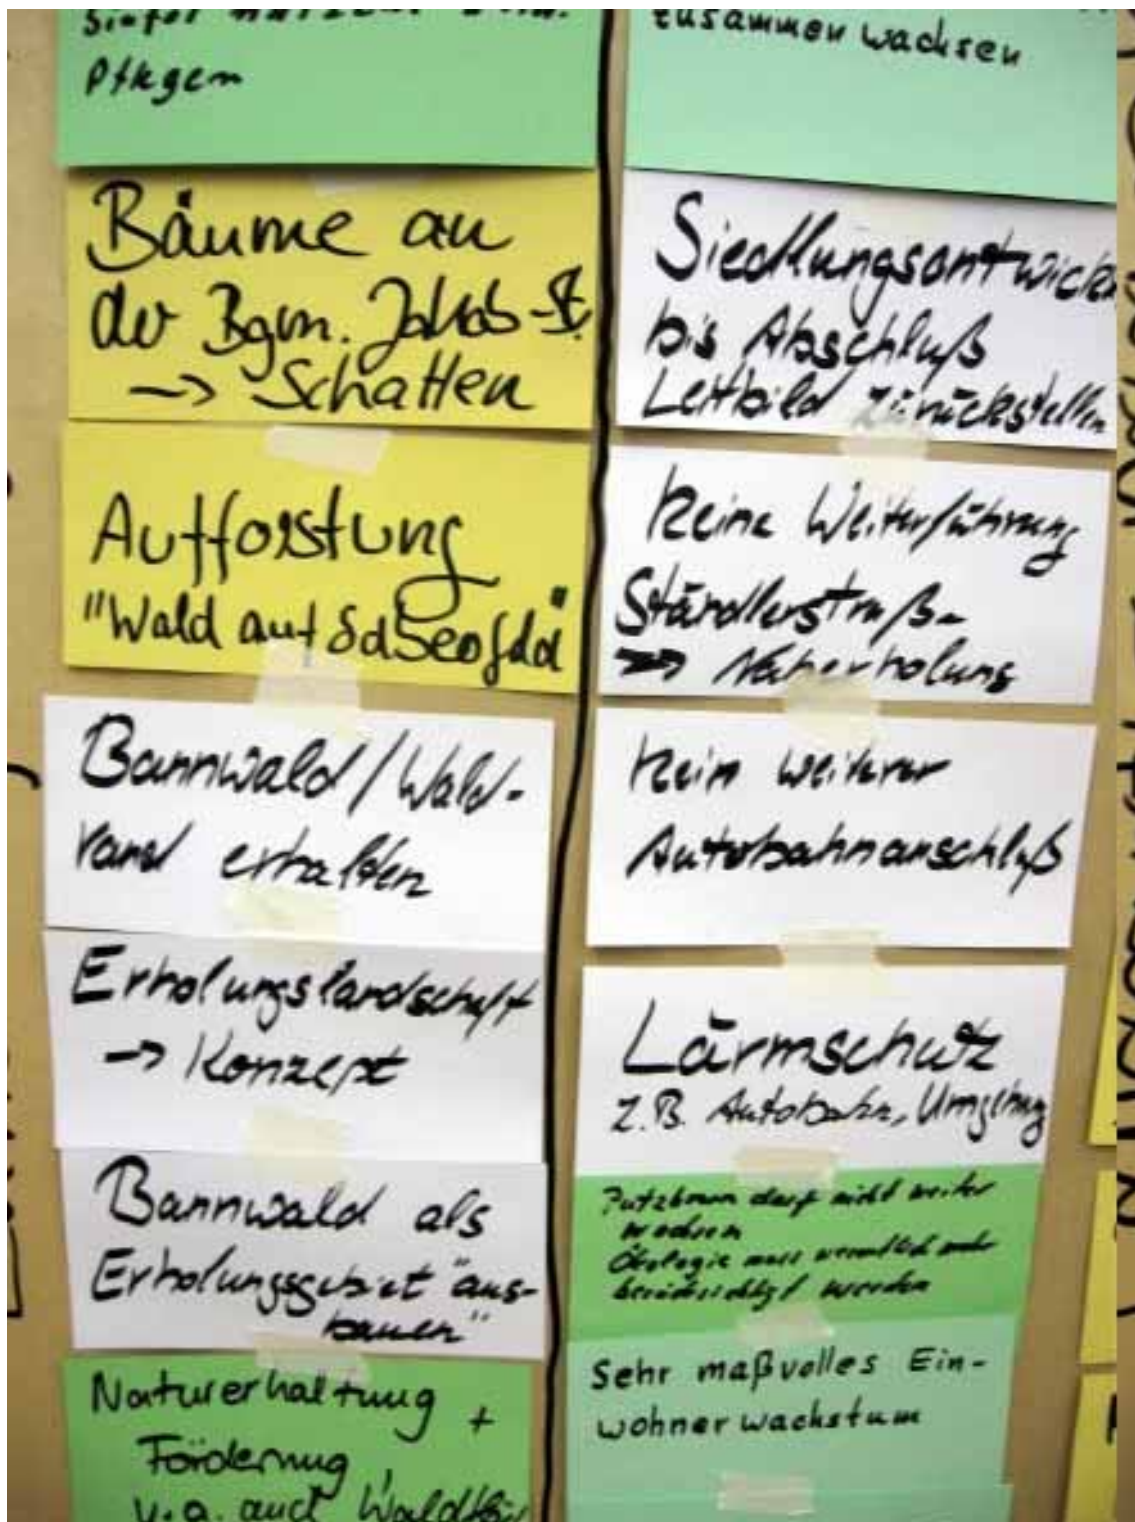 Pflegen
Bäume an
der Bgm. Jakob-St.
-> Schatten
Aufforstung
"Wald auf
Bannwald / Wald-
rand erhalten
Erholungslandschaft
-> Konzept
Bannwald als
Erholungsgebiet "aus-
bauen"
Naturerhaltung +
Förderung
v.a. auch
zusammen wachsen
bis Abschluß
Leitbild zurückstellen
Keine Weiterführung
Ständlerstraße
=> Naherholung
Kein weiterer
Autobahnanschluß
Lärmschutz
z.B. Autobahn, Umgebung
Putzbrunn darf nicht weiter
wachsen
Ökologie muss wesentlich mehr
berücksichtigt werden
Sehr maßvolles Ein-
wohnerwachstum